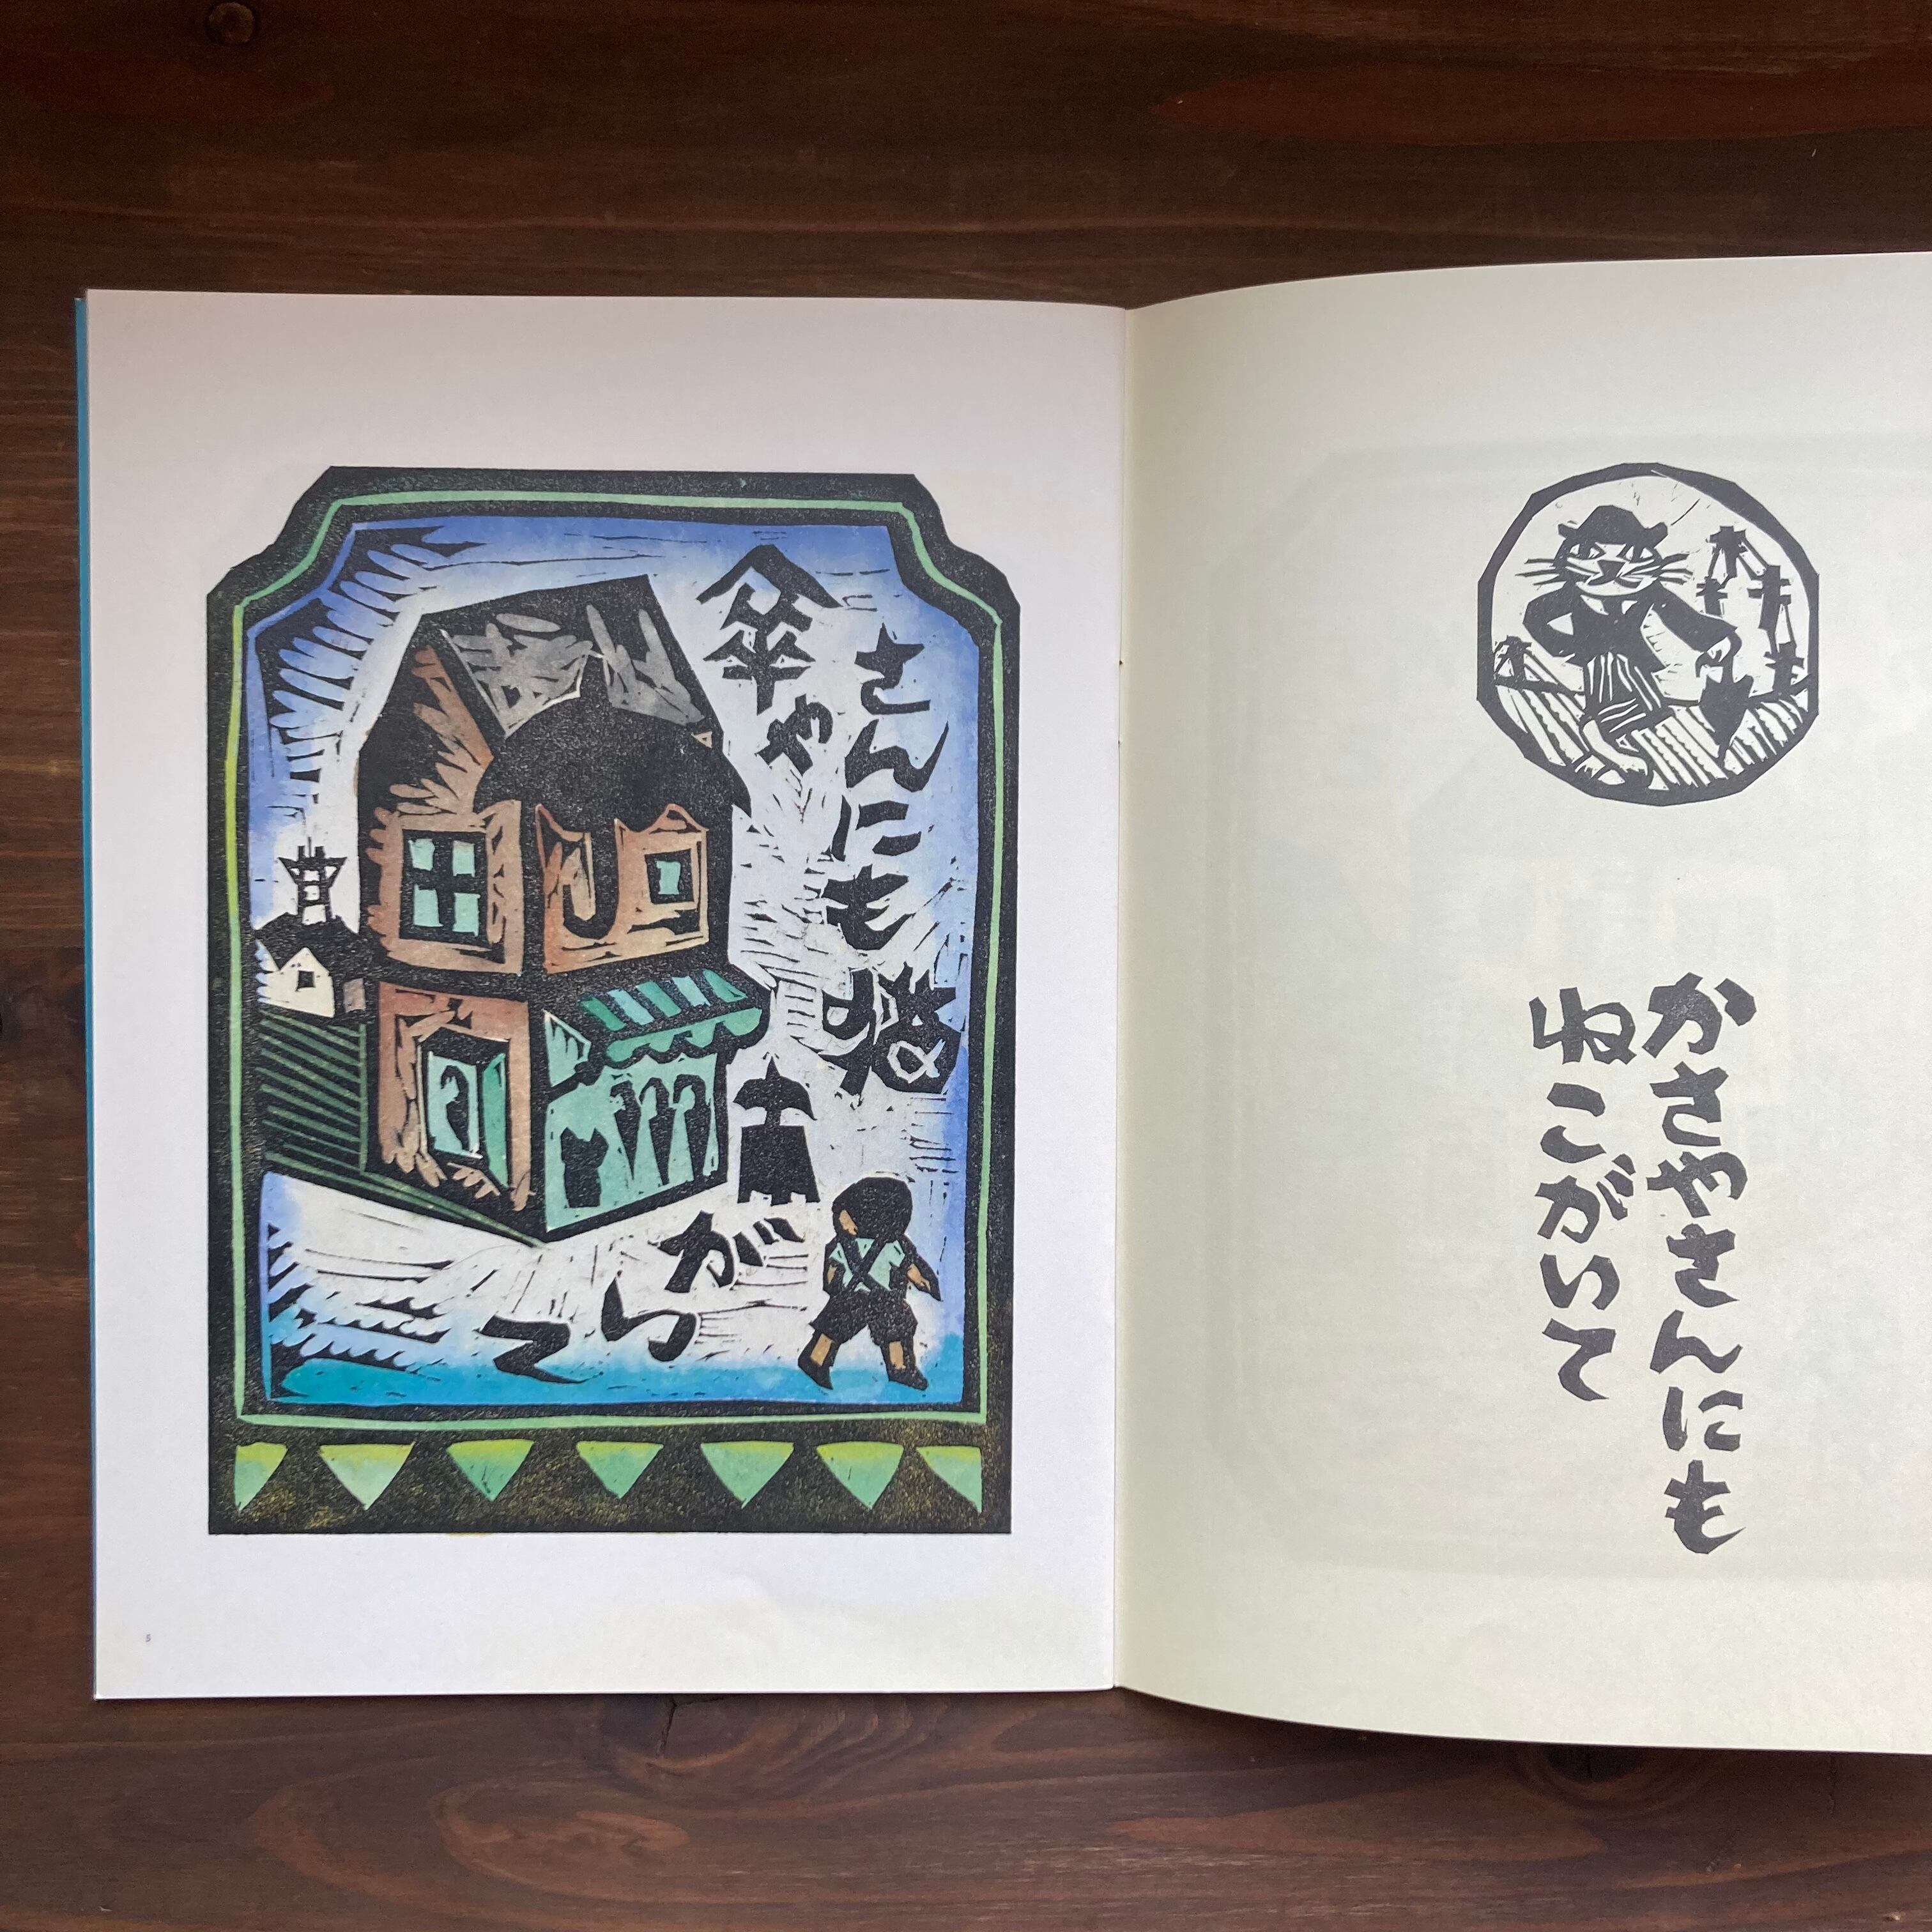 傘や
さんにも猫
がいて
かさやさんにも
ねこがいて
5